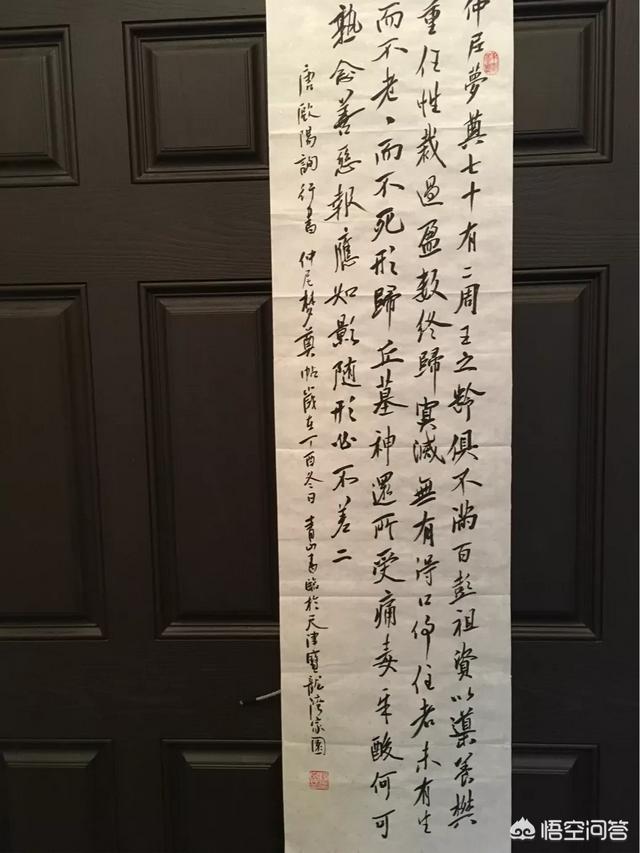 仲尼夢奠七十有二周王之齡俱不滿百彭祖資以導養樊
重任性裁過盈數終歸寞滅無有得口停住者未有生
而不老、而不死形歸丘墓神還所受痛毒辛酸何可
熟念善惡報應如影随形必不差二
唐歐陽詢行書仲尼梦奠帖歲在丁酉冬日青山臨於天津寶龍湾家園
悟空问答